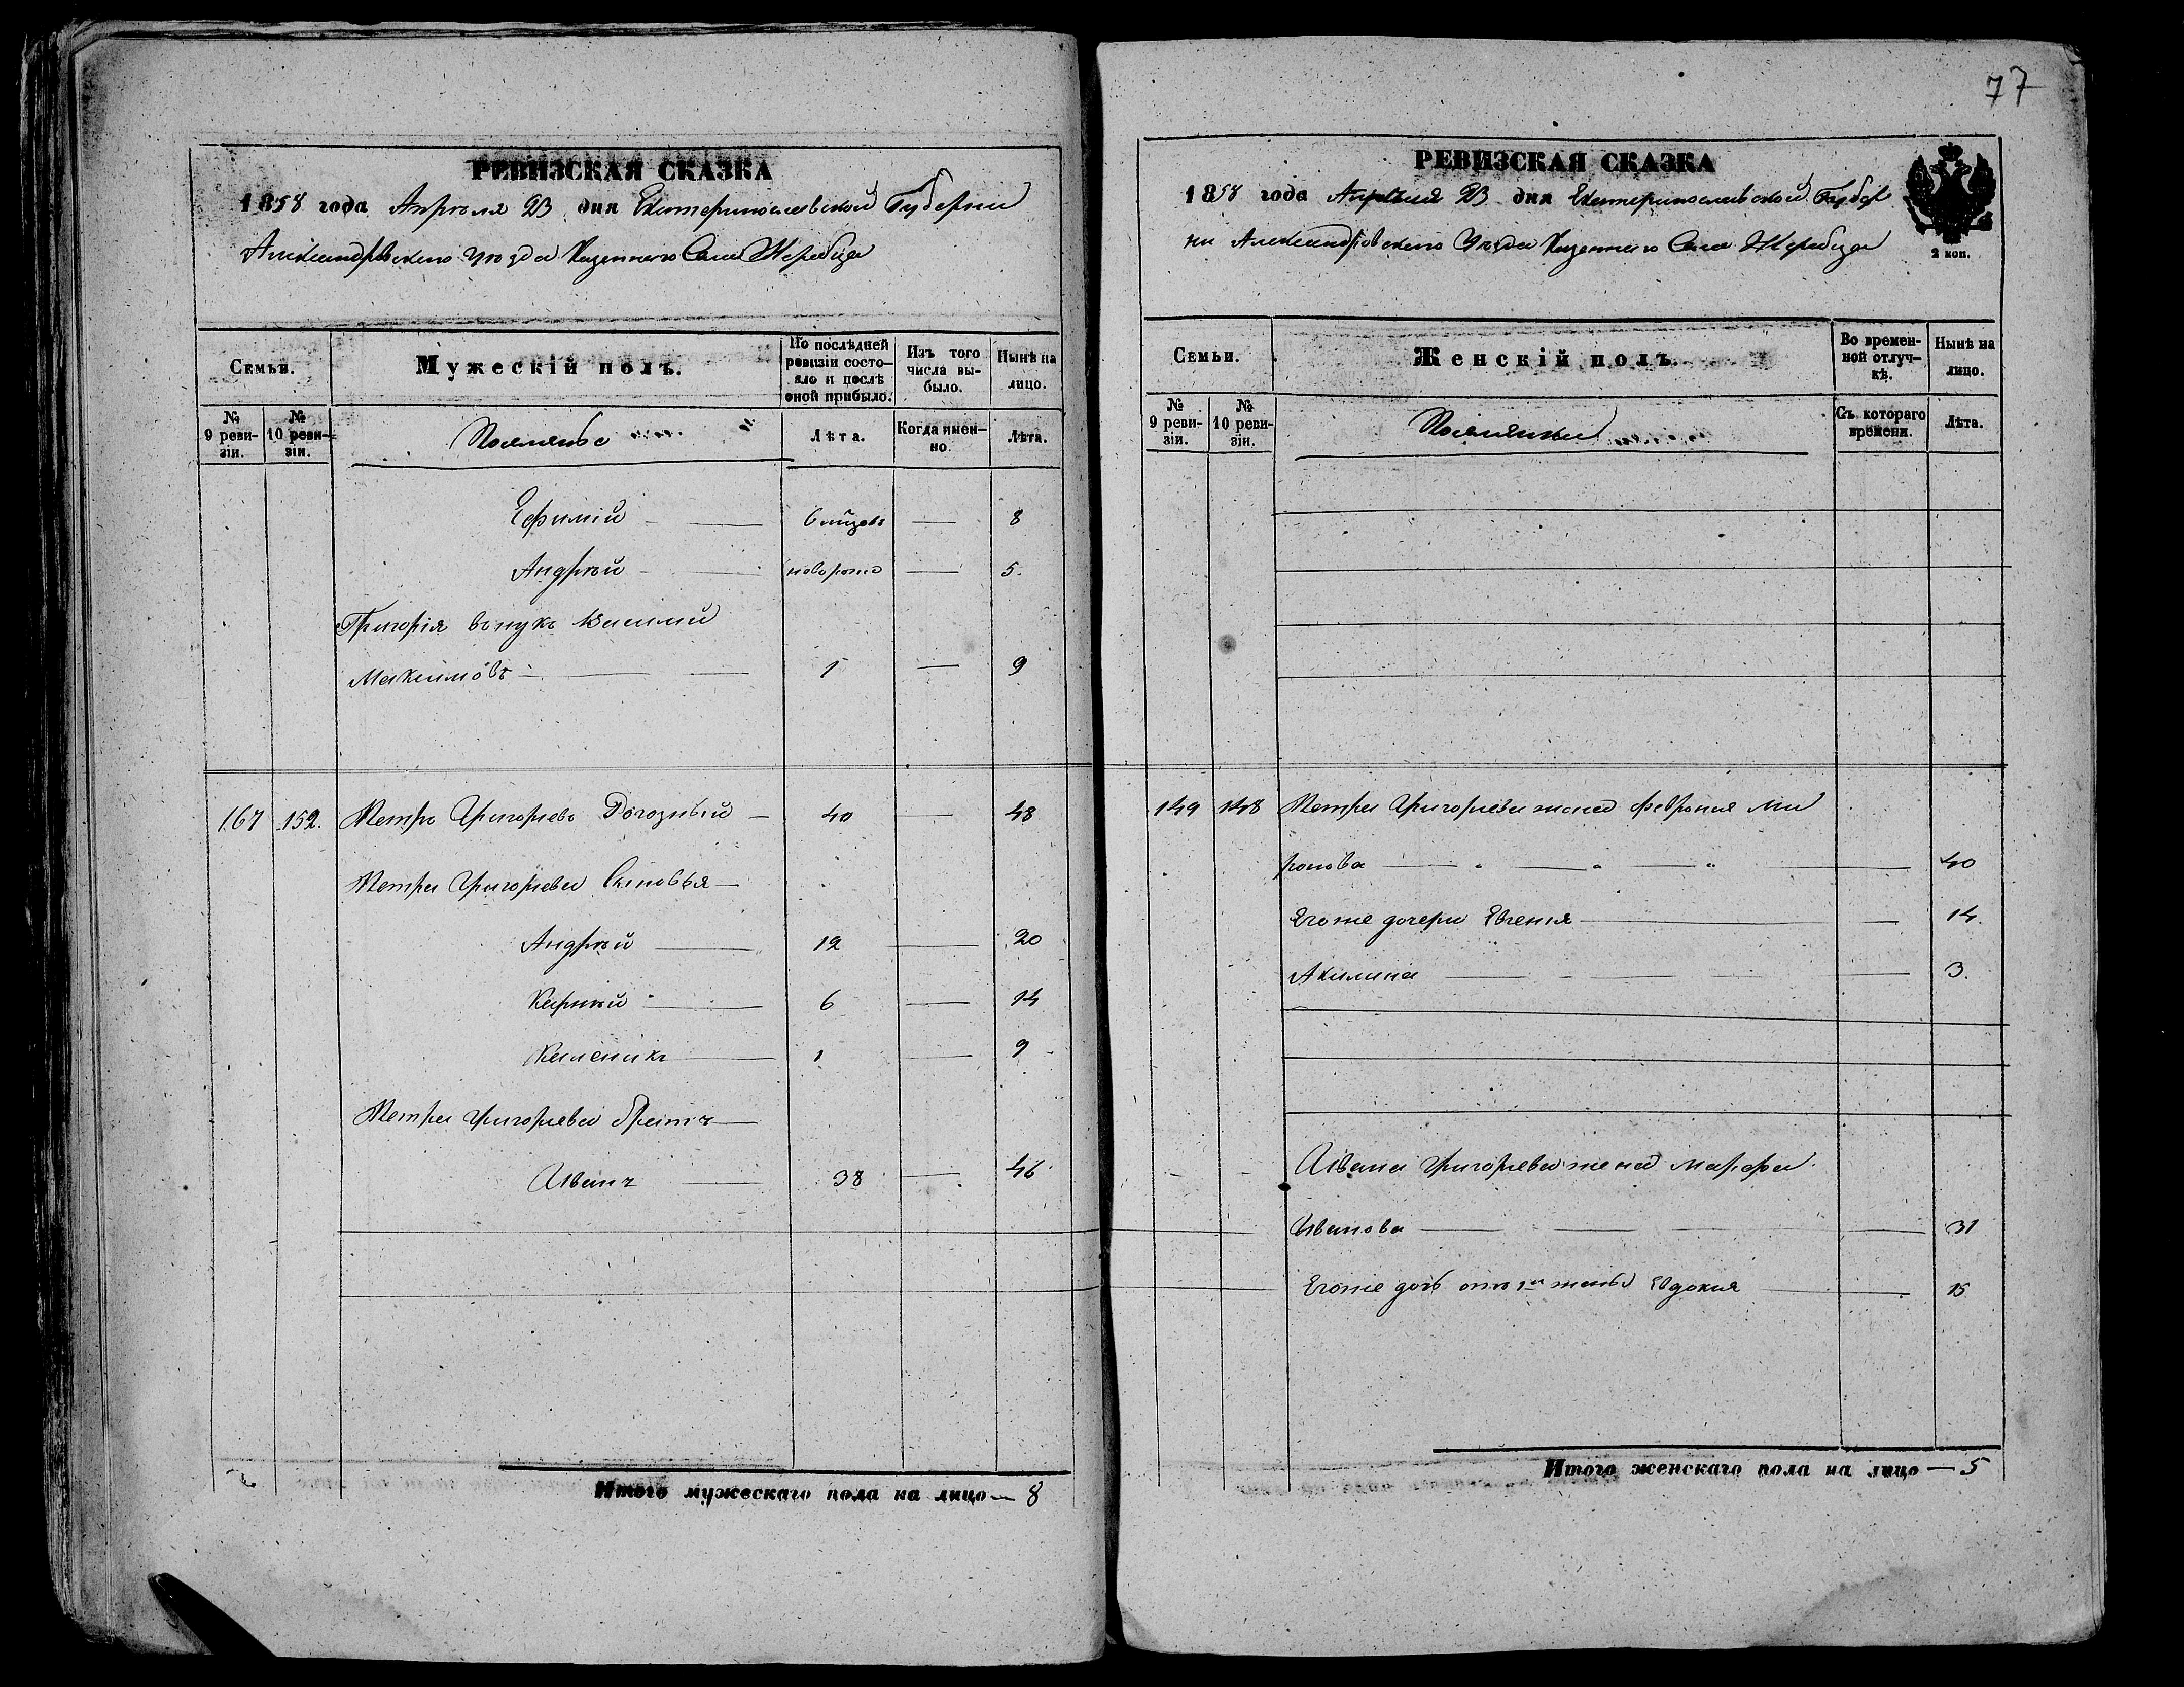 РЕВИЗСКАЯ СКАЗКА
1858 года Апреля 23 дня Екатеринославской Губернии
Александровского Уезда Казенного Села Жеребца
Семьи.
Мужескій полъ.
По послѣдней ревизіи состояло и послѣ оной прибыло.
Изъ того числа выбыло.
Нынѣ на лицо.
№ 9 ревизіи.
№ 10 ревизіи.
Лѣта.
Когда именно.
Лѣта.
Ефимій — 8
Андрѣй — новорож — 5.
Григорія внукъ Василий
Максимовъ — 1 — 9
167 152. Петръ Григорьевъ — 40 — 48
Петра Григорьева Сыновья —
Андрѣй — 12 — 20
Карпѣй — 6 — 14
Каленикъ — 1 — 9
Петра Григорьева братъ —
Иванъ — 38 — 46
Итого мужескаго пола на лицо — 8
77
РЕВИЗСКАЯ СКАЗКА
1858 года Апрѣля 23 дня Екатеринославской Губер
нии Александровского Уезда Казенного Села Жеребца
2 коп.
Семьи.
Женскій полъ.
Во временной отлучкѣ.
Нынѣ на лицо.
№ 9 ревизіи.
№ 10 ревизіи.
Поселянки
Съ котораго времени.
Лѣта.
149 148 Петра Григорьева жена Феврония Ми
ронова — 40
Егоже дочери Евгения — 14.
Акилина — 3.
Ивана Григорьева жена Марфа
Иванова — 31
Егоже дочь отъ 1й жены Евдокия — 15
Итого женскаго пола на лицо — 5